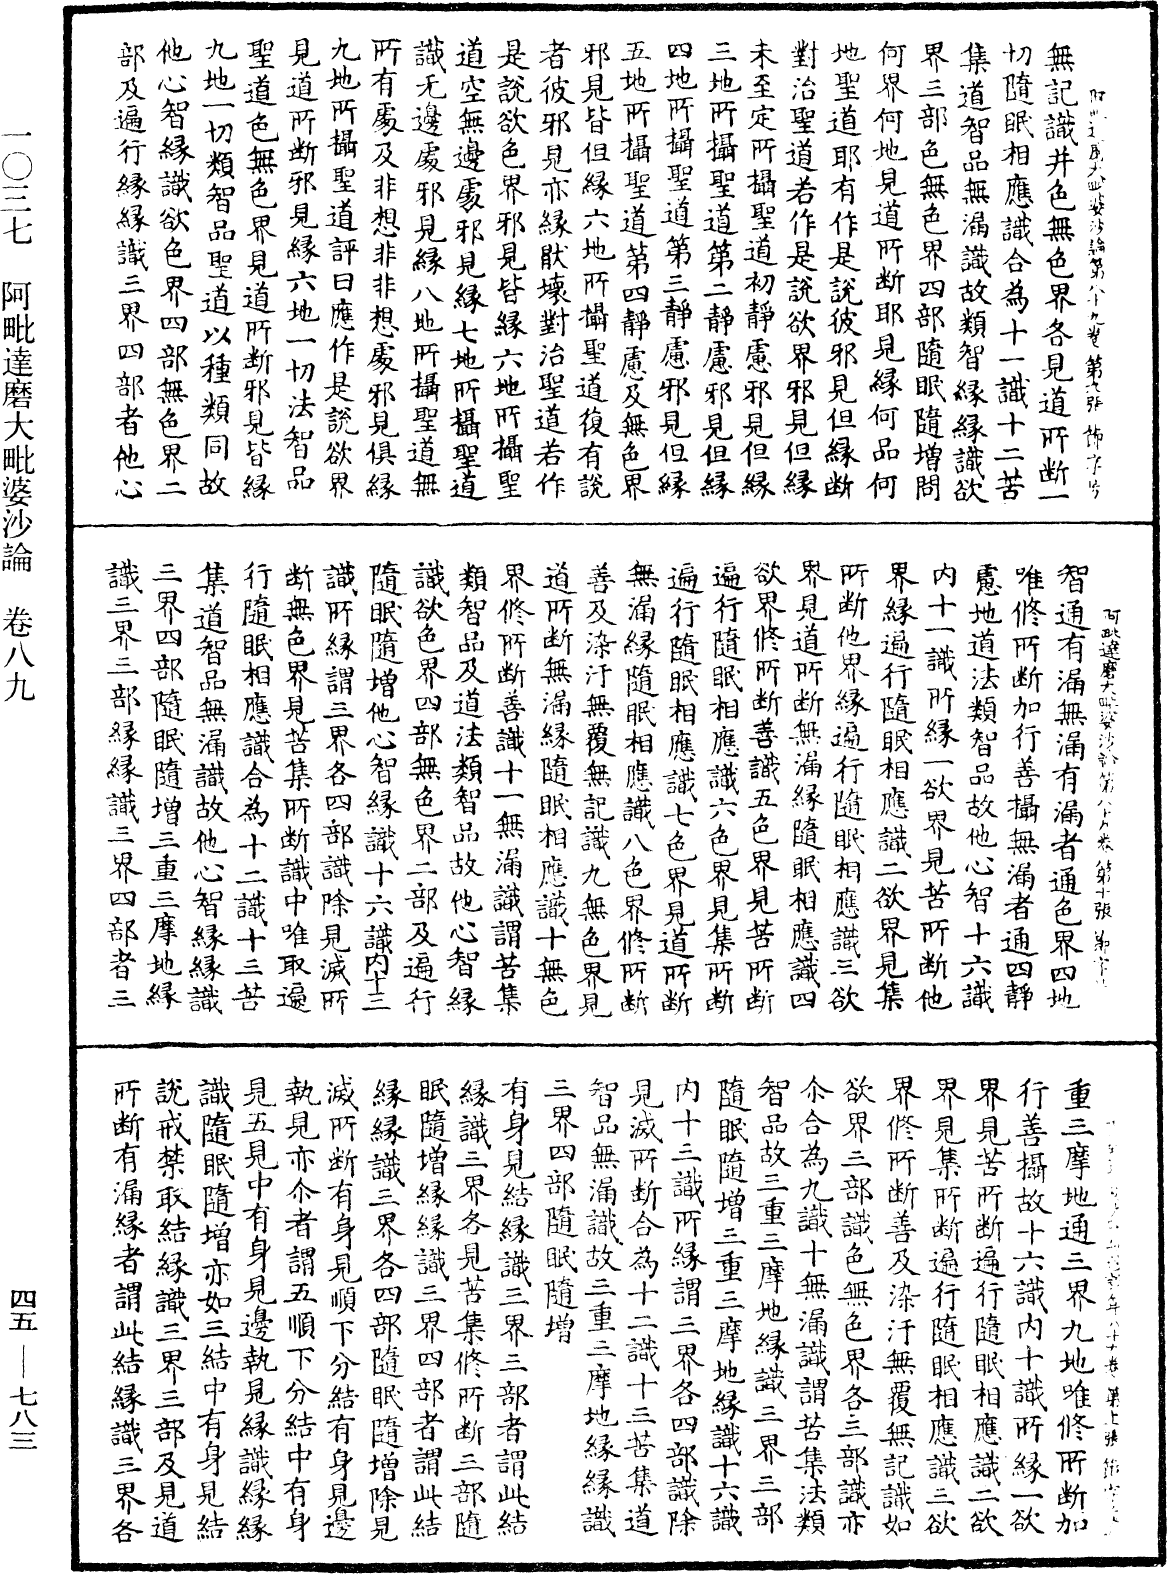 無記識并色無色界各見道所断一
切隨眠相應識合為十一識十二苦
集道智品無漏識故類智縁縁識欲
界三部色無色界四部隨眠隨增問
何界何地見道所断耶見縁何品何
地聖道耶有作是說彼邪見但縁断
對治聖道若作是說欲界邪見但縁
未至定所攝聖道初靜慮邪見但縁
三地所攝聖道第二靜慮邪見但縁
四地所攝聖道第三靜慮邪見但縁
五地所攝聖道第四靜慮及無色界
邪見皆但縁六地所攝聖道復有說
者彼邪見亦縁猒壞對治聖道若作
是說欲色界邪見皆縁六地所攝聖
道空無邊處邪見縁七地所攝聖道
識无邊處邪見縁八地所攝聖道無
所有處及非想非非想處邪見俱縁
九地所攝聖道評曰應作是說欲界
見道所断邪見縁六地一切法智品
聖道色無色界見道所断邪見皆縁
九地一切類智品聖道以種類同故
他心智縁識欲色界四部無色界二
部及遍行縁縁識三界四部者他心
智通有漏無漏有漏者通色界四地
唯修所断加行善攝無漏者通四靜
慮地道法類智品故他心智十六識
内十一識所縁一欲界見苦所断他
界縁遍行隨眠相應識二欲界見集
所断他界縁遍行隨眠相應識三欲
界見道所断無漏縁隨眠相應識四
欲界修所断善識五色界見苦所断
遍行隨眠相應識六色界見集所断
遍行隨眠相應識七色界見道所断
無漏縁隨眠相應識八色界修所断
善及染汙無覆無記識九無色界見
道所断無漏縁隨眠相應識十無色
界修所断善識十一無漏識謂苦集
類智品及道法類智品故他心智縁
識欲色界四部無色界二部及遍行
隨眠隨增他心智縁識十六識内十三
識所縁謂三界各四部識除見滅所
断無色界見苦集所断識中唯取遍
行隨眠相應識合為十二識十三苦
集道智品無漏識故他心智縁縁識
三界四部隨眠隨增三重三摩地縁
識三界三部縁縁識三界四部者三
重三摩地通三界九地唯修所断加
行善攝故十六識内十識所縁一欲
界見苦所断遍行隨眠相應識二欲
界見集所断遍行隨眠相應識三欲
界修所断善及染汙無覆無記識如
欲界三部識色無色界各三部識亦
尒合為九識十無漏識謂苦集法類
智品故三重三摩地縁識三界三部
隨眠隨增三重三摩地縁識十六識
内十三識所縁謂三界各四部識除
見滅所断合為十二識十三苦集道
智品無漏識故三重三摩地縁縁識
三界四部隨眠隨增
有身見結縁識三界三部者謂此結
縁識三界各見苦集修所断三部隨
眠隨增縁縁識三界四部者謂此結
縁縁識三界各四部隨眠隨增除見
滅所断有身見順下分結有身見邊
執見亦尒者謂五順下分結中有身
見五見中有身見邊執見縁識縁縁
識隨眠隨增亦如三結中有身見結
說戒禁取結縁識三界三部及見道
所断有漏縁者謂此結縁識三界各
一〇三七 阿毗達磨大毗婆沙論 卷八九
四五——七八三